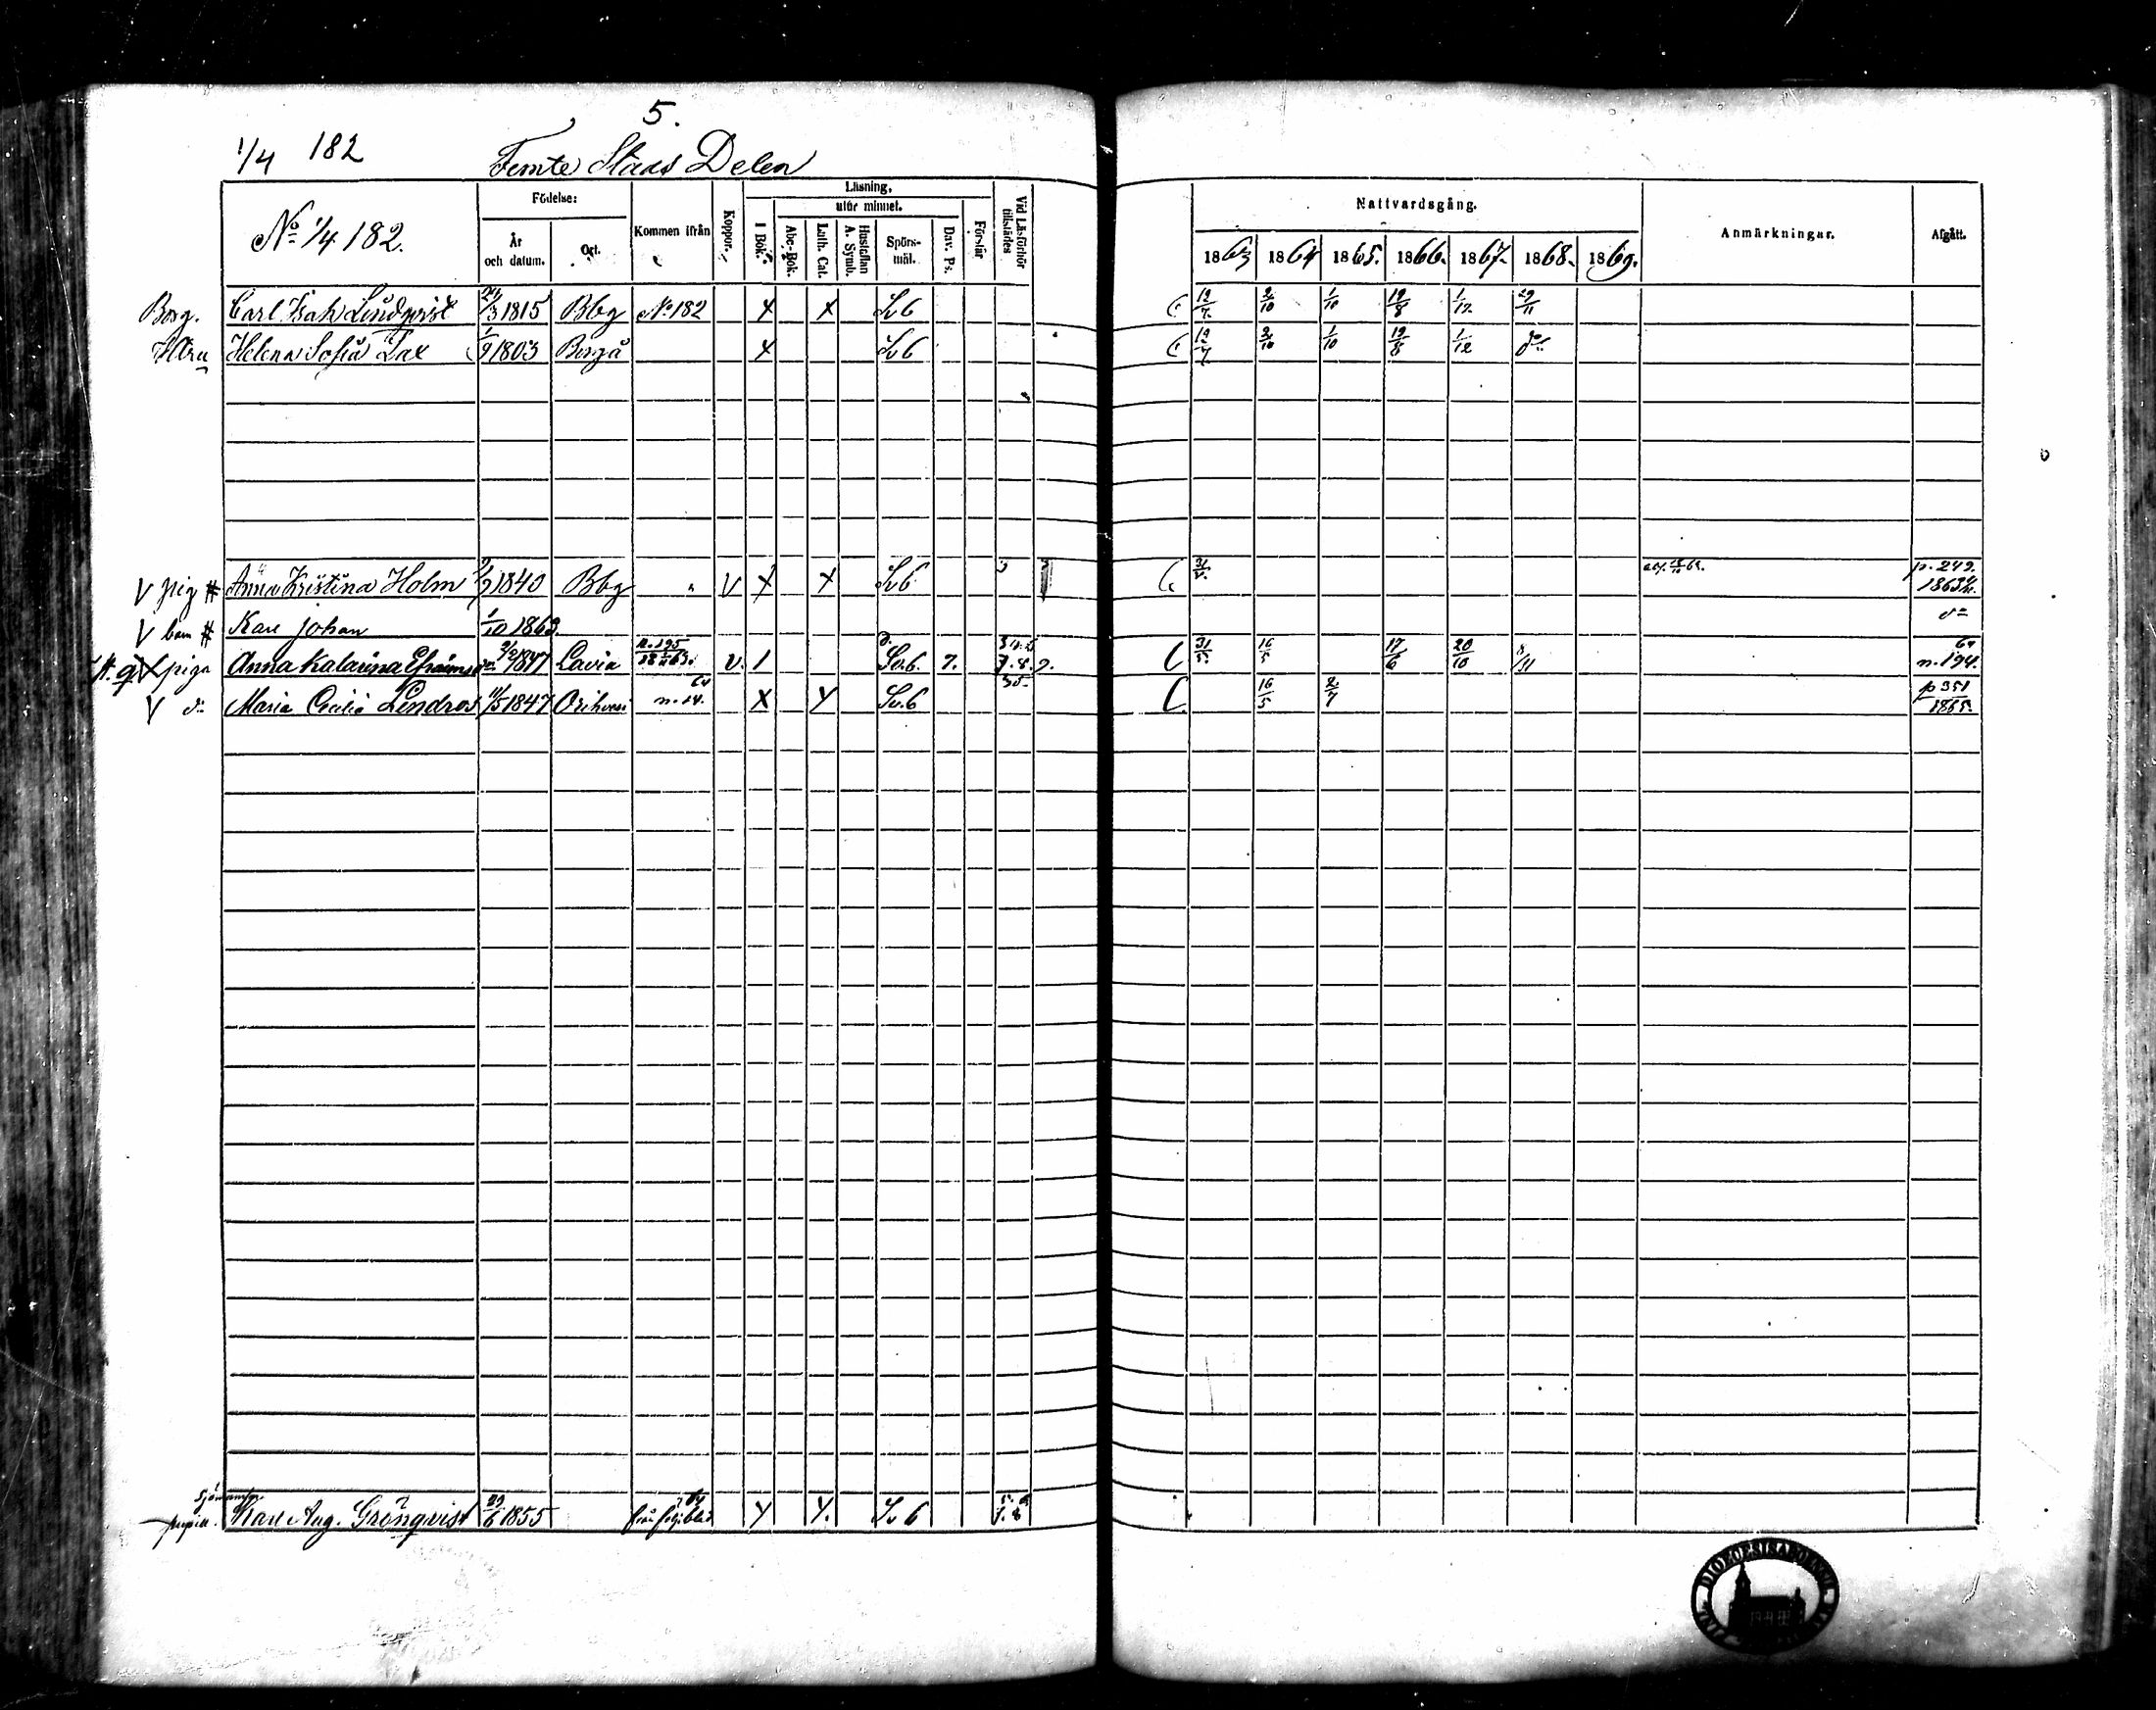 5.
1/4 182 Femte Stads Delen
No 1/4 182. Födelse: År och datum. Ort. Kommen ifrån Koppor. Läsning, I Bok. utur minnet. Abc-Bok. Luth. Cat. Hustaflan A. Symb. Spörs-mål. Dav. Ps. Förstår Vid Läsförhör tillstädes Nattvardsgång. 1863 1864 1865. 1866. 1867. 1868. 1869. Anmärkningar. Afgått.
Borg. Carl Isak Lindqvist 1815 Bbg No 182 X X Sv 6 12/7 2/10 1/10 19/8 1/12 29/11
Helena Sofia Lax 1/9 1803 Borgå X Sv 6 12/7 2/10 1/10 19/8 1/12 do
V pig # Anna Kristina Holm 1840 Bbg V X X Sv6 p. 249. 1863
V barn # Karl Johan 1/10 1863. do
piga Anna Katarina 1847 Lavia n. 195 v. 1 Sv.6. 7. 7.8.9. 31/5. 16/5 17/6 20/10 8/11 64 n. 194.
V do Maria Cecilia Lindros 11/5 1847 Orihvesi n. 14. 64 X Y Sv.6 16/5 2/7 p 351 1865.
Karl Aug. Grönqvist 1855 från Y Y. Sv 6 7.8